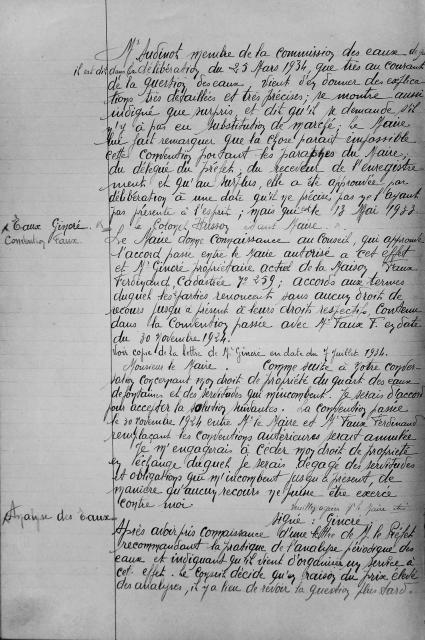 Mr Audinot membre de la commission des eaux
il est dit dans la délibération du 23 Mars 1934, que très au courant
de la question des eaux, vient d'en donner des explica
tions très détaillées et très précises; se montre aussi
indigné que surpris, et dit qu'il se demande s'il
n'y a pas eu substitution de marché; le Maire
lui fait remarquer que la chose parait impossible
cette convention portant les paraphes du Maire,
du délégué du préfet, du receveur de l'enregistre
ment et qu'au surplus, elle a été approuvée par
délibération à une date qu'il ne précise pas ne l'ayant
pas présente à l'esprit; mais qui est le 13 Mai 1933
le Colonel Husson étant Maire.
Eaux Gincré.
Convention Eaux
Le Maire donne connaissance au Conseil, qui approuve
l'accord passé entre le Maire autorisé à cet effet
et Mr Gincré propriétaire actuel de la Maison Faux
Ferdinand, Cadastrée No 259; accords aux termes
duquel les parties renoncent sans aucun droit de
recours jusqu'à présent à leurs droits respectifs, Contenue
dans la Convention passée avec Mr Faux F. en date
du 30 Novembre 1924.
Voir copie de la lettre de Mr Gincré en date du 7 Juillet 1934.
Monsieur le Maire. Comme suite à votre conver-
sation concernant mon droit de propriété du quart des eaux
de fontaines et des servitudes qui m'incombent. Je serais d'accord
pour accepter la solution suivantes. La convention passée
le 30 novembre 1924 entre Mr le Maire et Mr Faux Ferdinand
remplaçant les Conventions antérieures serait annulée
Je m'engagerais à céder mon droit de propriété
en l'échange duquel je serais dégagé des servitudes
et obligations qui m'incombent jusqu'à présent, de
manière qu'aucun recours ne puisse être exercé
contre moi.
Signé : Gincré
Analyse des Eaux
Après avoir pris connaissance d'une lettre de Mr le Préfet
recommandant la pratique de l'analyse périodique des
eaux et indiquant qu'il vient d'organiser un service à
cet effet. Le Conseil décide qu'en raison du prix élevé
des analyses, il y a lieu de revoir la question plus tard.